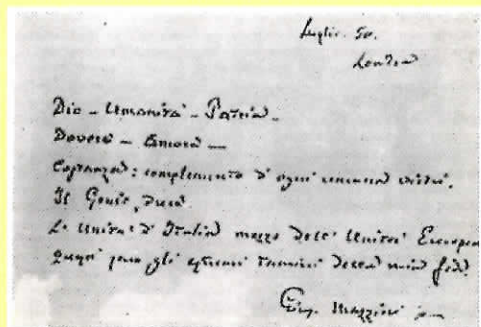 Luglio. 50.
London
Dio – Umanità – Patria –
Dovere – Amore –
Costanza: complemento d'ogni umana virtù.
Il Genio, Duce.
La Unità d'Italia mezzo dell'Unità Europea
Questi sono gli estremi termini della mia fede.
Gius. Mazzini